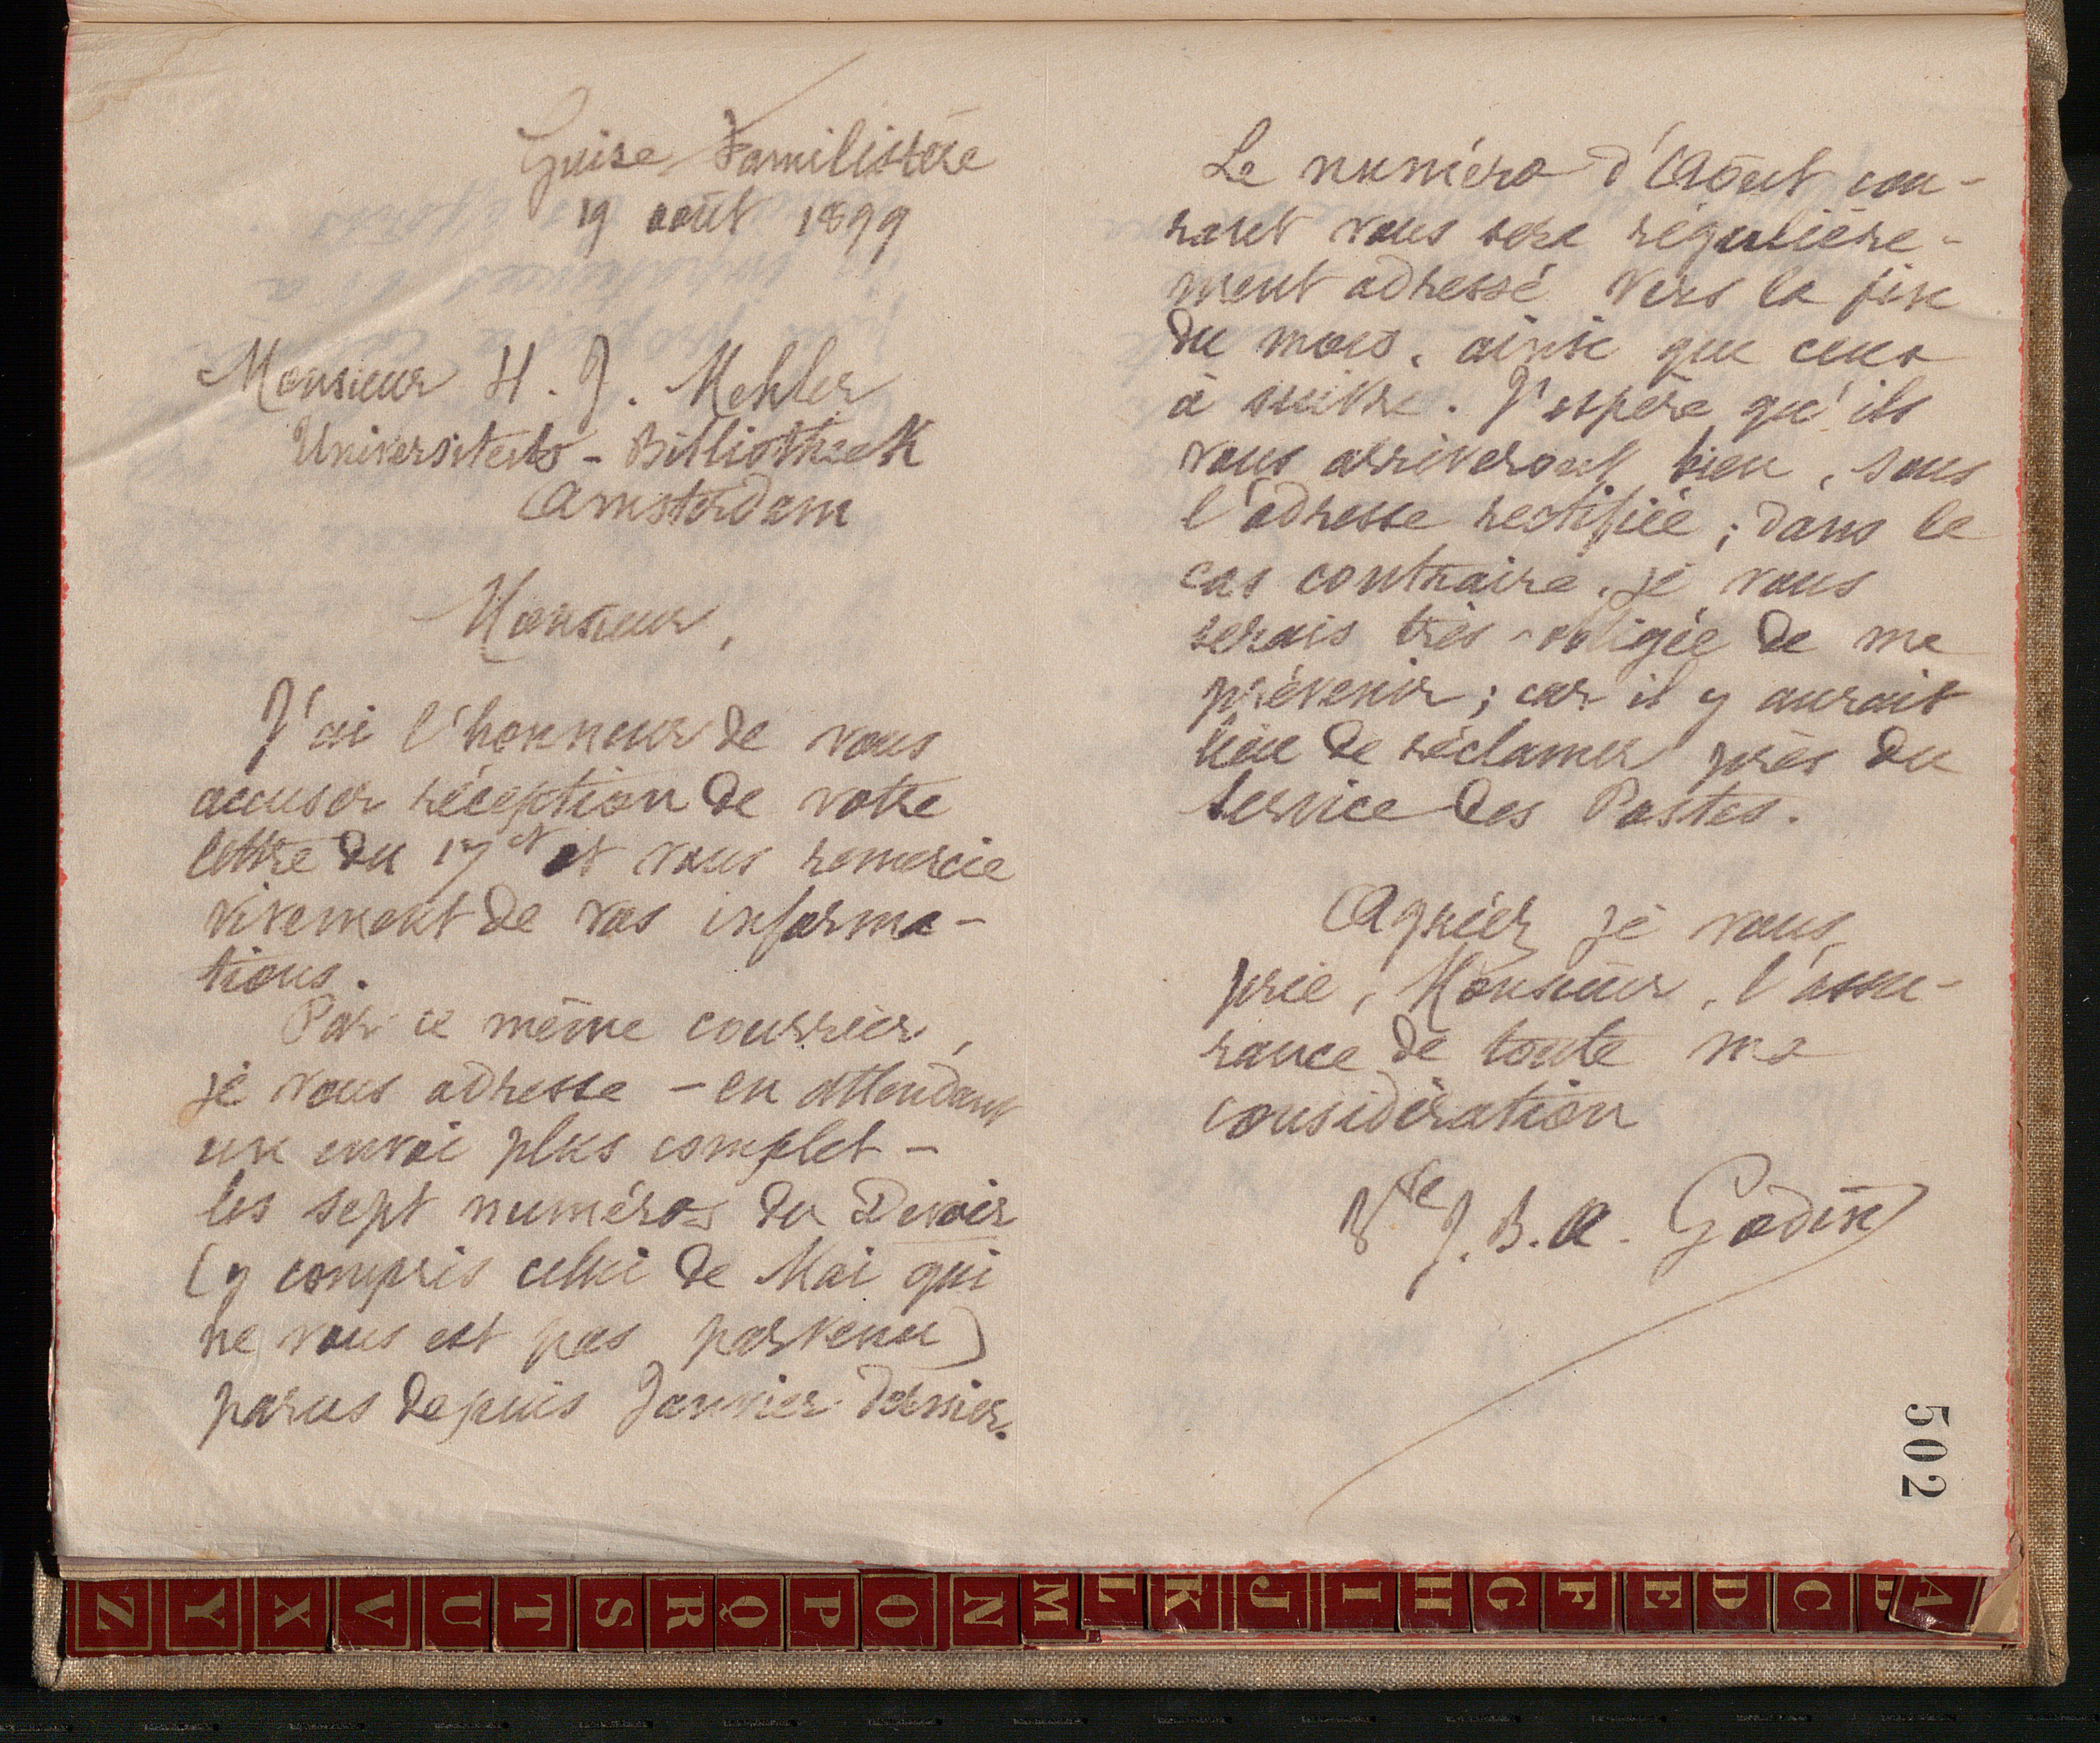 Guise Familistère
19 août 1899
Monsieur H. J. Mehler
Universiteits-Bibliotheek
Amsterdam
Monsieur,
J'ai l'honneur de vous
accuser réception de votre
lettre du 17 ct et vous remercie
vivement de vos informa-
tions.
Par ce même courrier,
je vous adresse - en attendant
un envoi plus complet -
les sept numéros du Devoir
(y compris celui de Mai qui
ne vous est pas parvenu)
parus depuis Janvier dernier.
Le numéro d'Août cou-
rant vous sera régulière-
ment adressé vers la fin
du mois, ainsi que ceux
à suivre. J'espère qu'ils
vous arriveront bien, sous
l'adresse rectifiée ; dans le
cas contraire, je vous
serais très-obligée de me
prévenir ; car il y aurait
lieu de réclamer près du
service des Postes.
Agréez je vous
prie, Monsieur, l'assu-
rance de toute ma
considération
Vve J. B. A. Godin
502
Z Y X V U T S R Q P O N M L K J I H G F E D C B A